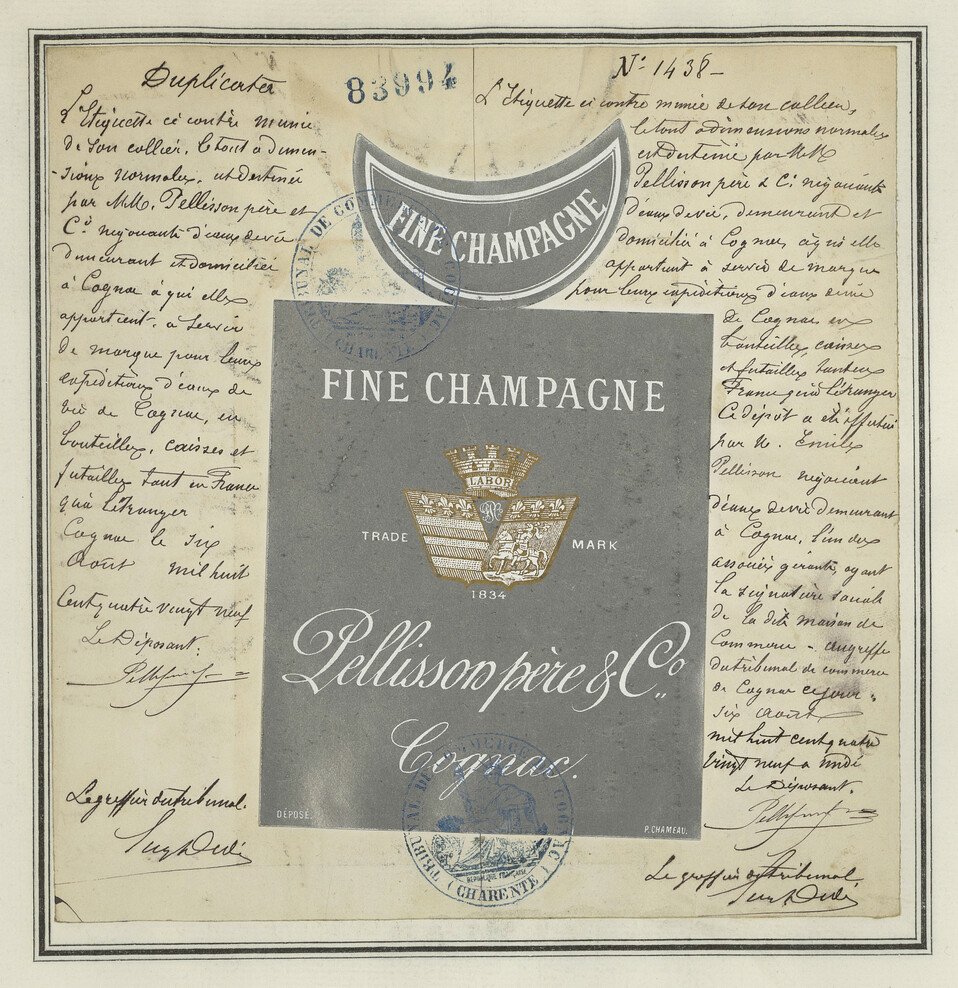 Duplicata
L'Etiquette ci contre munie
de son collier, le tout à dimen-
-sions normales, est destinée
par MM. Pellisson père et
Cº négociants d'eaux de vie
demeurant et domiciliés
à Cognac à qui elle
appartient, à servir
de marque pour leurs
expéditions d'eaux de
vie de Cognac, en
bouteilles, caisses et
futailles tant en France
qu'à l'étranger
Cognac le six
Août mil huit
Cent quatre vingt neuf
Le Déposant:
Le greffier du tribunal.
83994
FINE CHAMPAGNE
FINE CHAMPAGNE
LABOR
TRADE MARK
1834
Pellisson père & Cº
Cognac.
DÉPOSÉ.
P. CHAMEAU.
TRIBUNAL DE COMMERCE COGNAC
(CHARENTE)
TRIBUNAL DE COMMERCE COGNAC
RÉPUBLIQUE FRANÇAISE
(CHARENTE)
Nº 1438-
L'Etiquette ci contre munie de son collier,
le tout à dimensions normales
est destinée par MM
Pellisson père & Cº négociants
d'eaux de vie, demeurant et
domiciliés à Cognac, à qui elle
appartient à servir de marque
pour leurs expéditions d'eaux de vie
de Cognac en
bouteilles, caisses
et futailles tant en
France qu'à l'étranger
Ce dépôt a été effectué
par M. Emile
Pellisson négociant
d'eaux de vie demeurant
à Cognac, l'un des
associés gérants, ayant
la signature sociale
de la dite maison de
Commerce - au greffe
du tribunal de commerce
de Cognac ce jour
six Août
mil huit cent quatre
vingt neuf à midi
Le Déposant.
Le greffier du tribunal